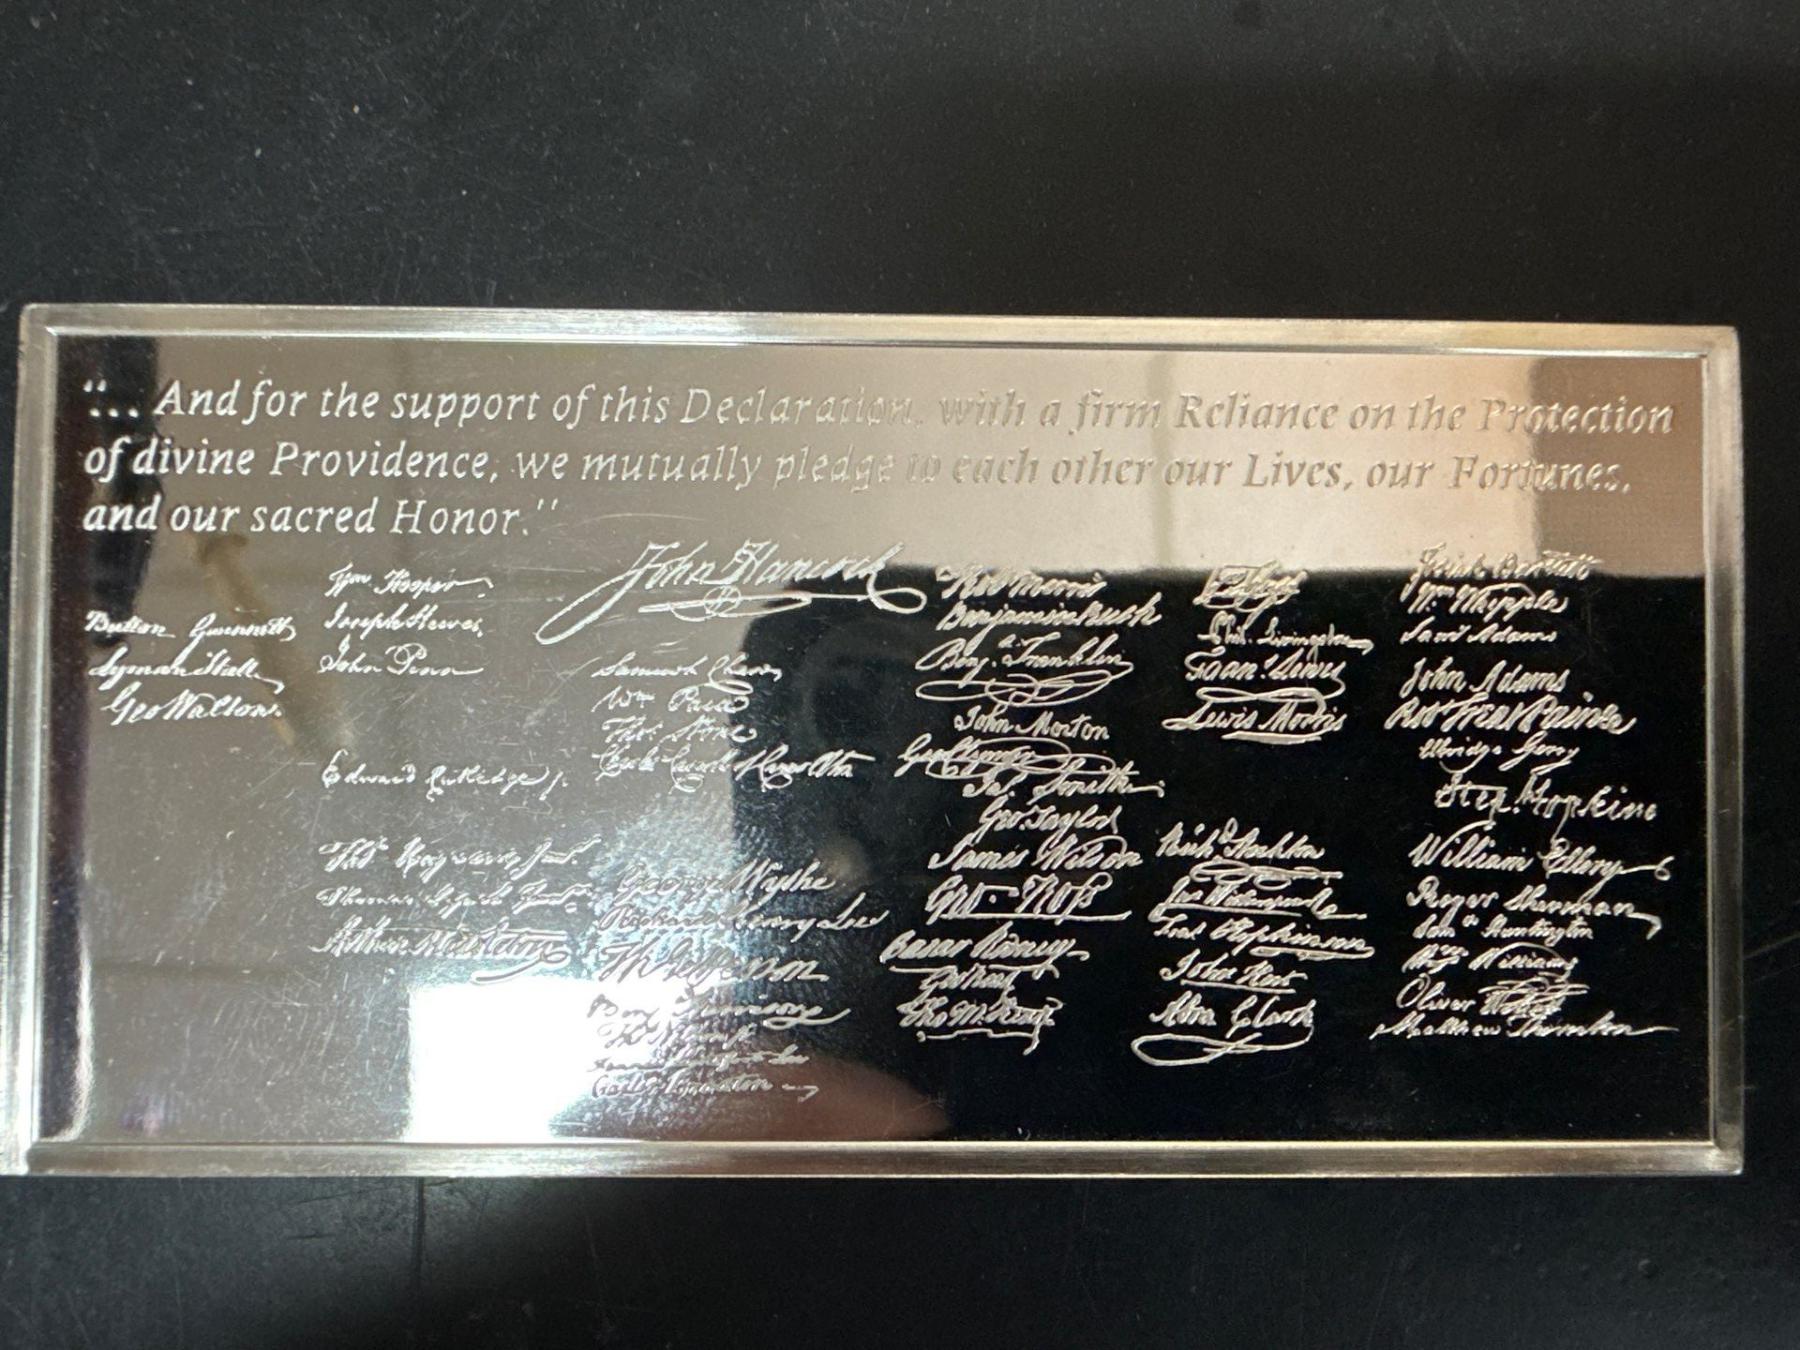 "... And for the support of this Declaration, with a firm Reliance on the Protection
of divine Providence, we mutually pledge to each other our Lives, our Fortunes,
and our sacred Honor."
Button Gwinnett
Lyman Hall
Geo Walton.
Wm. Hooper
Joseph Hewes,
John Penn
Edward Rutledge
Thos Heyward Junr.
Thomas Lynch Junr.
Arthur Middleton
John Hancock
Samuel Chase
Wm Paca
Thos. Stone
Charles Carroll of Carrollton
George Wythe
Richard Henry Lee
Th Jefferson
Benj Harrison
Ths Nelson jr
Francis Lightfoot Lee
Carter Braxton
Robt Morris
Benjamin Rush
Benj. Franklin
John Morton
Geo Clymer
Jas. Smith
Geo. Taylor
James Wilson
Geo. Ross
Caesar Rodney
Geo Read
Tho M:Kean
Phil. Livingston
Frans. Lewis
Lewis Morris
Richd Stockton
Jno Witherspoon
Fras Hopkinson
John Hart
Abra Clark
Josiah Bartlett
Wm Whipple
Saml Adams
John Adams
Robt Treat Paine
Elbridge Gerry
Step. Hopkins
William Ellery
Roger Sherman
Samel Huntington
Wm Williams
Oliver Wolcott
Matthew Thornton